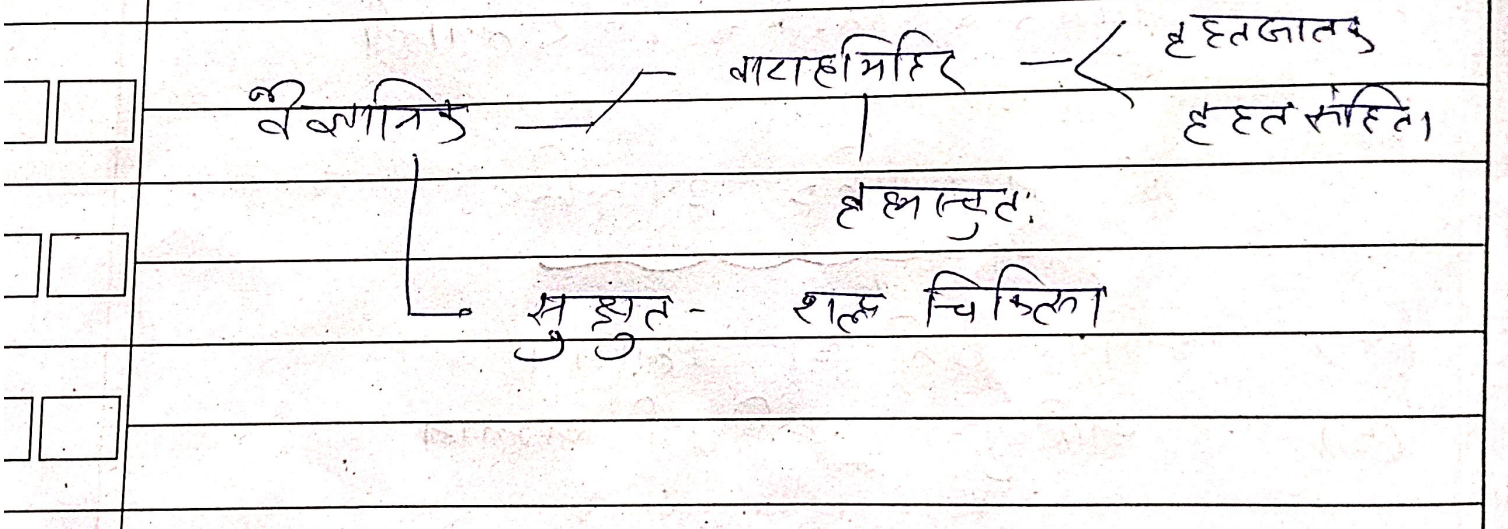 वैज्ञानिक — वाराहमिहिर — वृहतजातक
वृहत संहिता
सुश्रुत - शल्य चिकित्सा